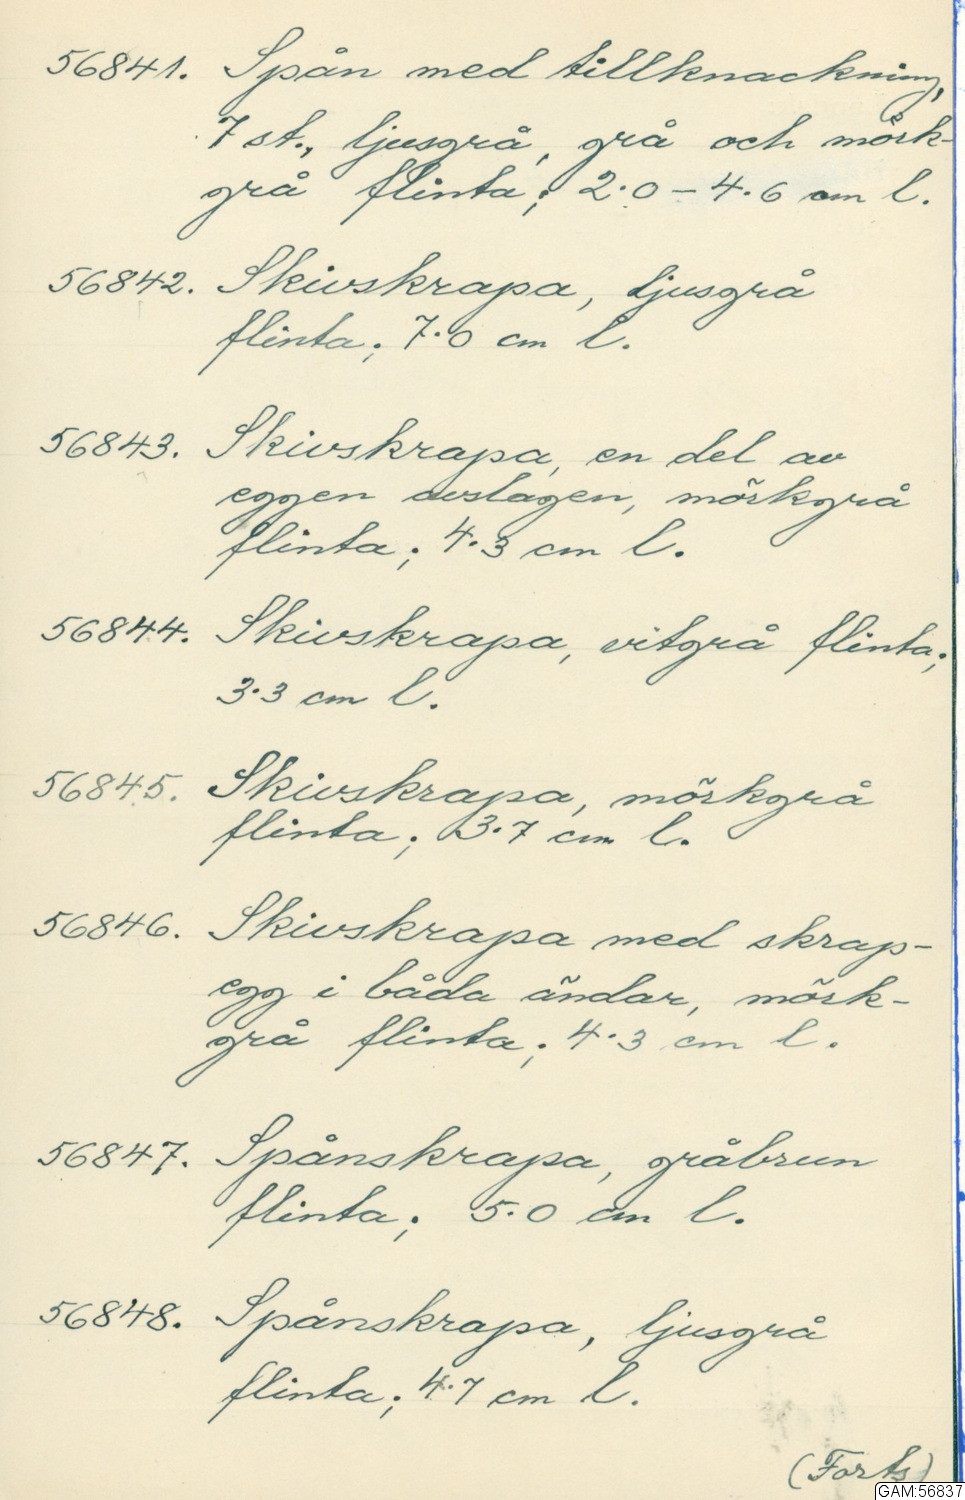 56841. Spån med tillknackning,
7 st., ljusgrå, grå och mörk-
grå flinta; 2.0 – 4.6 cm l.
56842. Skivskrapa, ljusgrå
flinta; 7.0 cm l.
56843. Skivskrapa, en del av
eggen avslagen, mörkgrå
flinta; 4.3 cm l.
56844. Skivskrapa, vitgrå flinta;
3.3 cm l.
56845. Skivskrapa, mörkgrå
flinta; 3.7 cm l.
56846. Skivskrapa med skrap-
egg i båda ändar, mörk-
grå flinta; 4.3 cm l.
56847. Spånskrapa, gråbrun
flinta; 5.0 cm l.
56848. Spånskrapa, ljusgrå
flinta; 4.7 cm l.
(Forts)
GAM:56837